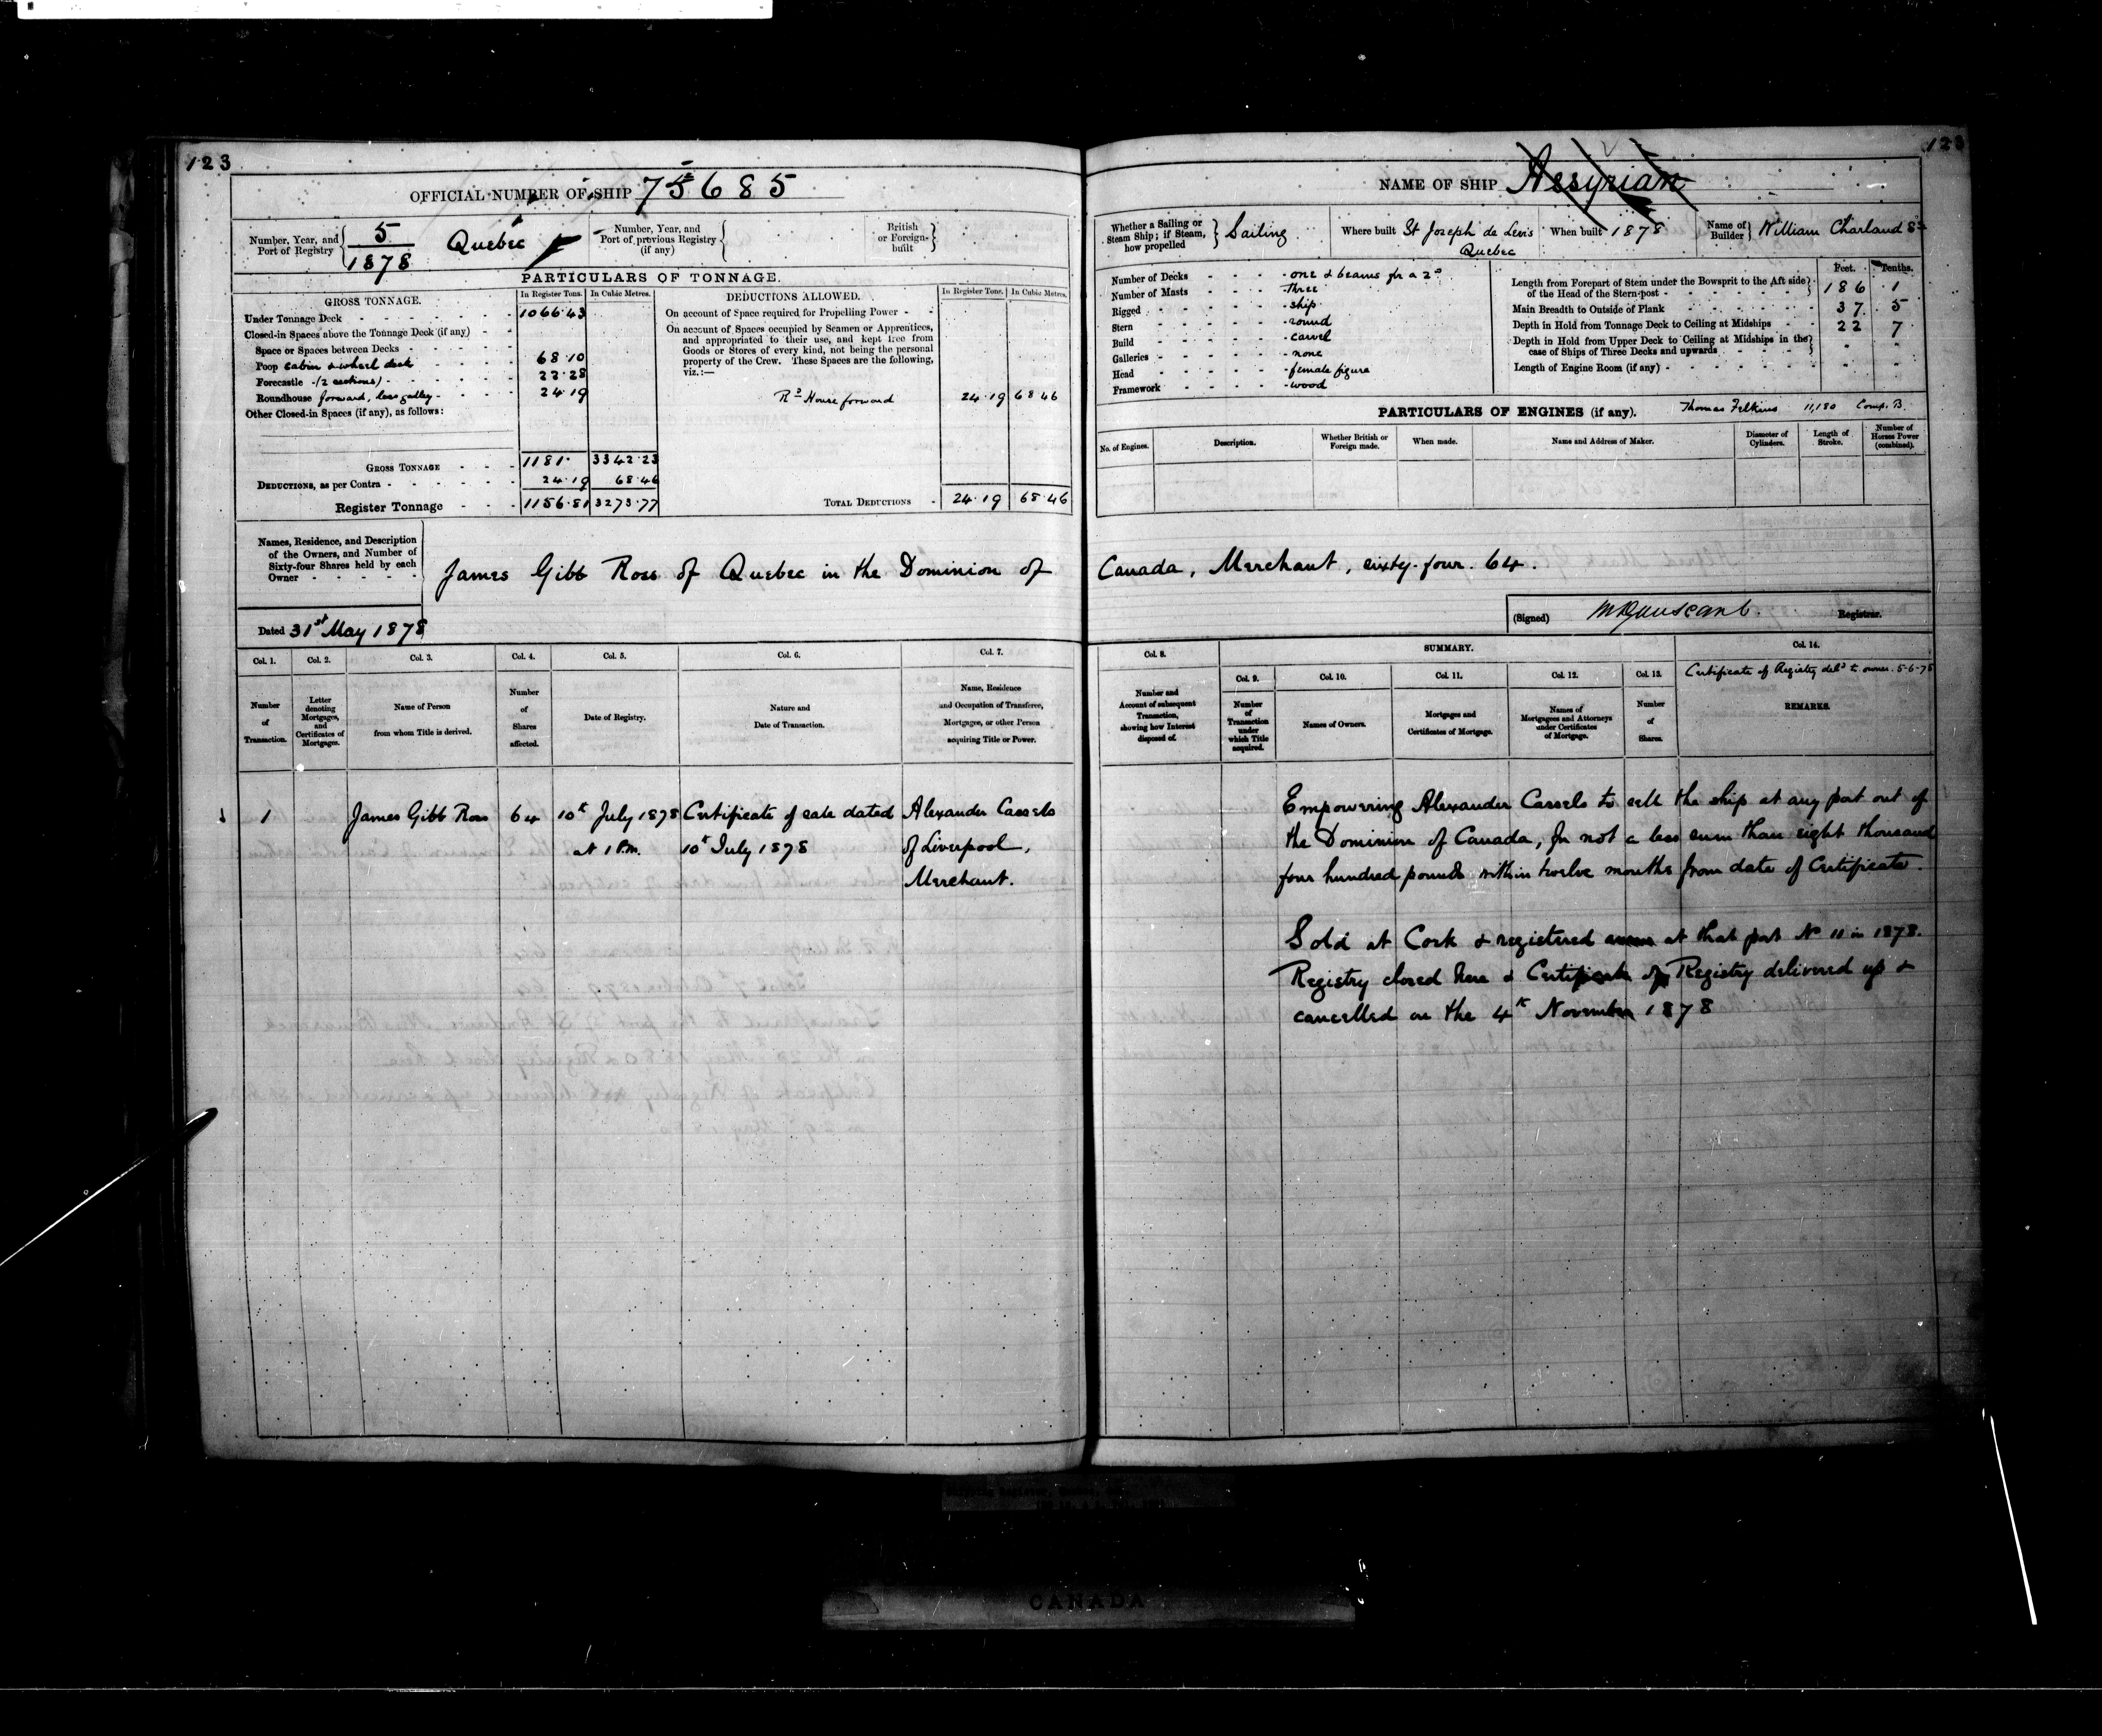 123
123
OFFICIAL NUMBER OF SHIP 75685
Number, Year, and Port of Registry
5
1878
Quebec
Number, Year, and Port of previous Registry (if any)
British or Foreign-built
PARTICULARS OF TONNAGE.
GROSS TONNAGE.
In Register Tons.
In Cubic Metres.
Under Tonnage Deck - 1066.43
Closed-in Spaces above the Tonnage Deck (if any)
Space or Spaces between Decks
Poop cabin & wheel deck 68.10
Forecastle (2 sections) 22.28
Roundhouse forward, less galley 24.19
Other Closed-in Spaces (if any), as follows:
GROSS TONNAGE 1181. 3342.23
DEDUCTIONS, as per Contra 24.19 68.46
Register Tonnage 1156.81 3273.77
DEDUCTIONS ALLOWED.
In Register Tons.
In Cubic Metres.
On account of Space required for Propelling Power
On account of Spaces occupied by Seamen or Apprentices,
and appropriated to their use, and kept free from
Goods or Stores of every kind, not being the personal
property of the Crew. These Spaces are the following,
viz.:—
Rd House forward 24.19 68.46
TOTAL DEDUCTIONS 24.19 68.46
NAME OF SHIP Assyrian
Whether a Sailing or Steam Ship; if Steam, how propelled
Sailing
Where built St Joseph de Levis
Quebec
When built 1878
Name of Builder William Charland Sr
Number of Decks - one & beams for a 2d
Number of Masts - three
Rigged - ship
Stern - round
Build - carvel
Galleries - none
Head - female figure
Framework - wood
Feet. Tenths.
Length from Forepart of Stem under the Bowsprit to the Aft side of the Head of the Stern-post 186 .1
Main Breadth to Outside of Plank 37. 5
Depth in Hold from Tonnage Deck to Ceiling at Midships 22 7
Depth in Hold from Upper Deck to Ceiling at Midships in the case of Ships of Three Decks and upwards
Length of Engine Room (if any)
PARTICULARS OF ENGINES (if any).
Thomas Felkins 11,180 Comp. B.
No. of Engines.
Description.
Whether British or Foreign made.
When made.
Name and Address of Maker.
Diameter of Cylinders.
Length of Stroke.
Number of Horses Power (combined).
Names, Residence, and Description
of the Owners, and Number of
Sixty-four Shares held by each
Owner
James Gibb Ross of Quebec in the Dominion of Canada, Merchant, sixty-four. 64.
Dated 31st May 1878
(Signed)
Registrar.
Col. 1.
Number of Transaction.
Col. 2.
Letter denoting Mortgages, and Certificates of Mortgages.
Col. 3.
Name of Person from whom Title is derived.
Col. 4.
Number of Shares affected.
Col. 5.
Date of Registry.
Col. 6.
Nature and Date of Transaction.
Col. 7.
Name, Residence and Occupation of Transferee, Mortgagee, or other Person acquiring Title or Power.
Col. 8.
Number and Account of subsequent Transaction, showing how Interest disposed of.
SUMMARY.
Col. 9.
Number of Transaction under which Title acquired.
Col. 10.
Names of Owners.
Col. 11.
Mortgages and Certificates of Mortgage.
Col. 12.
Names of Mortgagees and Attorneys under Certificates of Mortgage.
Col. 13.
Number of Shares.
Col. 14.
Certificate of Registry deld to owner. 5-6-78
REMARKS.
1
James Gibb Ross
64
10th July 1878
at 1 P.m.
Certificate of sale dated
10th July 1878
Alexander Cassels
of Liverpool,
Merchant.
Empowering Alexander Cassels to sell the ship at any port out of
the Dominion of Canada, for not a less sum than eight thousand
four hundred pounds within twelve months from date of Certificate.
Sold at Cork & registered anew at that port No 11 in 1878.
Registry closed here & Certificate of Registry delivered up &
cancelled on the 4th November 1878
CANADA